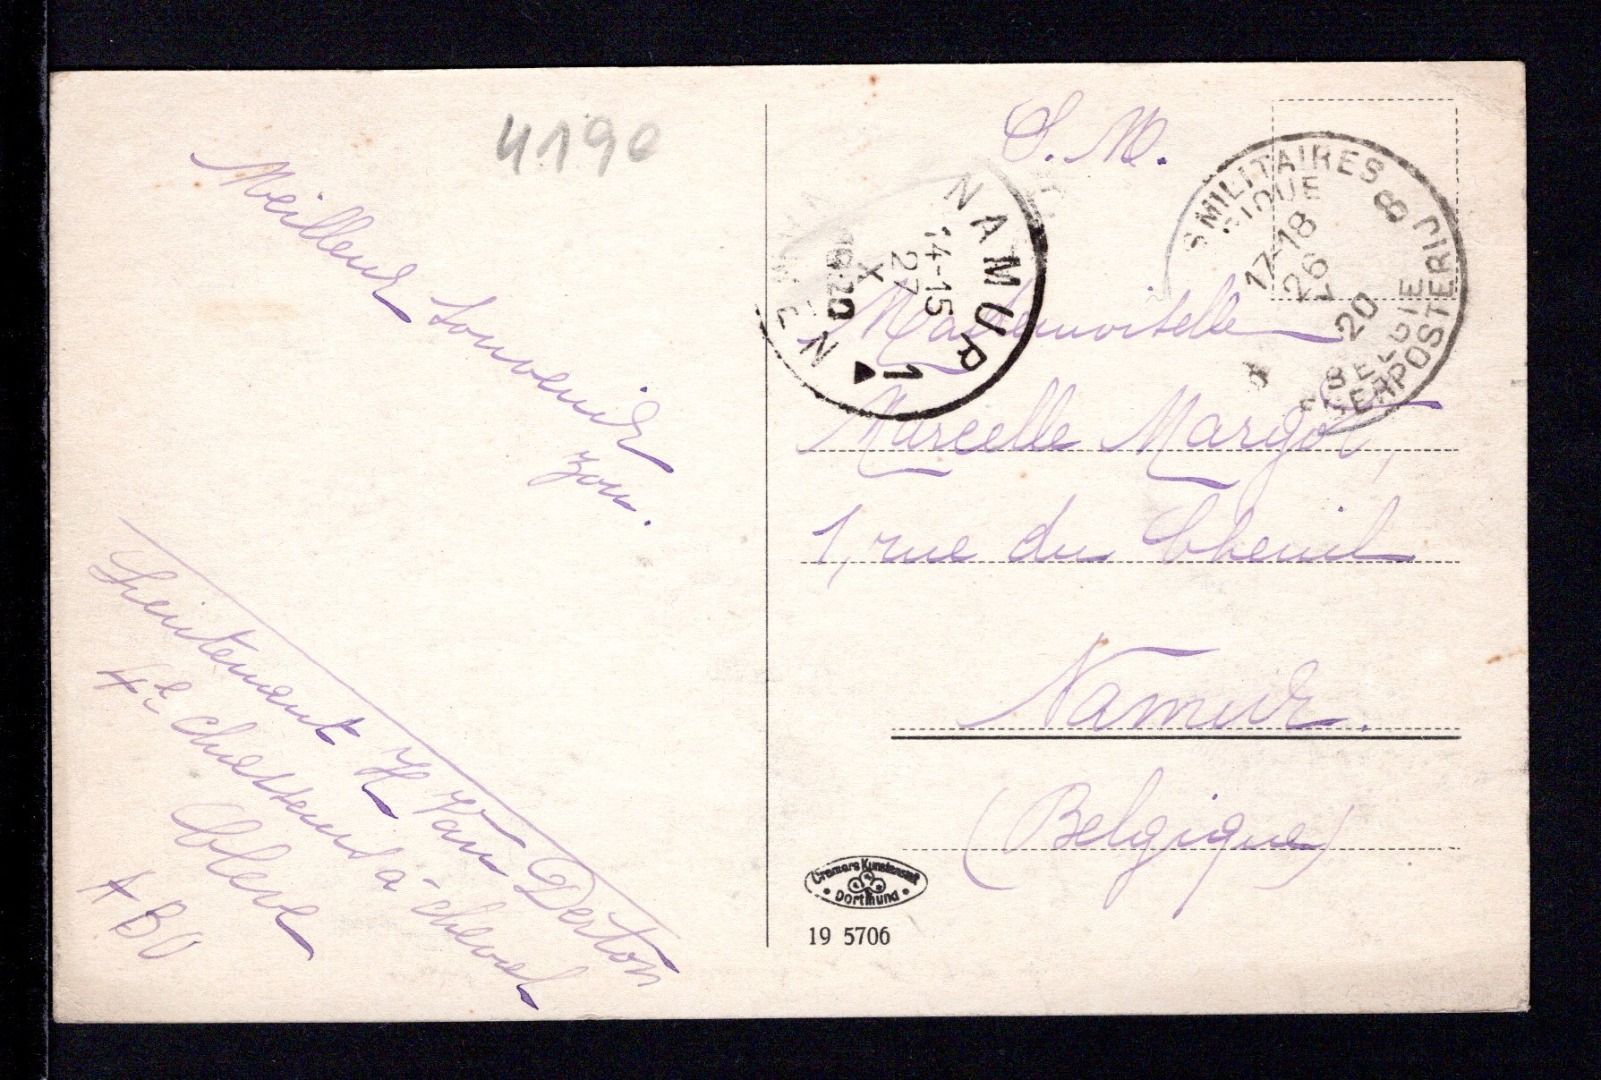 4190
Meilleur souvenir
Lieutenant H Van Derton
4e chasseurs à cheval
Clève
A B O
S. M.
Mademoiselle
Marcelle Margot,
1, rue du Chenil
Namur.
(Belgique)
NAMUR 1
14-15
27
X
1920
NAMEN
S MILITAIRES 8
GIQUE
17-18
26
20
BELGIE
GERPOSTERIJ
Cramers Kunstanstalt
Dortmund
19 5706